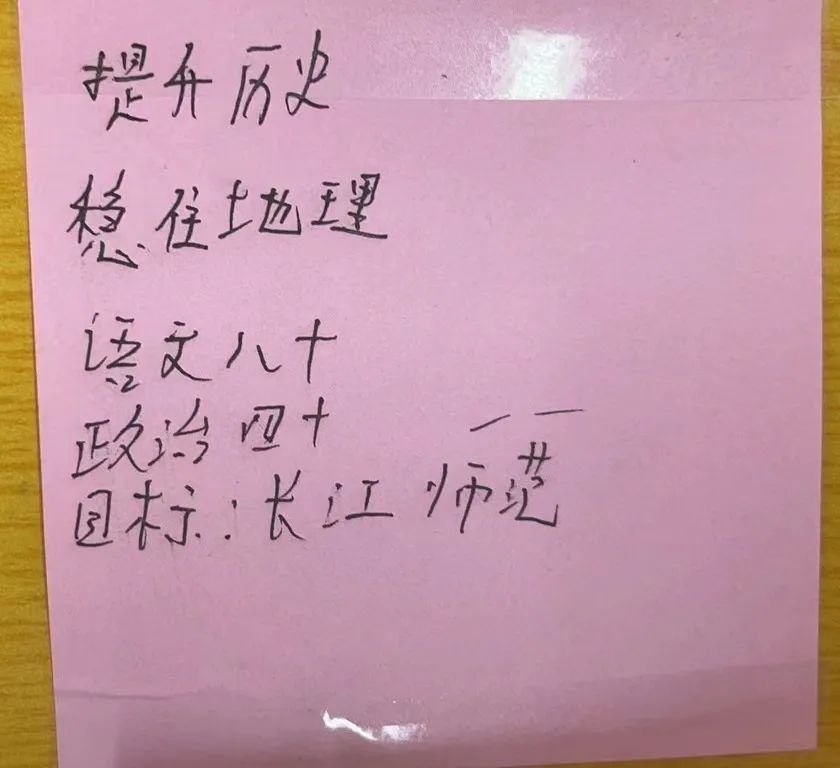 提升历史
稳住地理
语文八十
政治四十
目标:长江师范